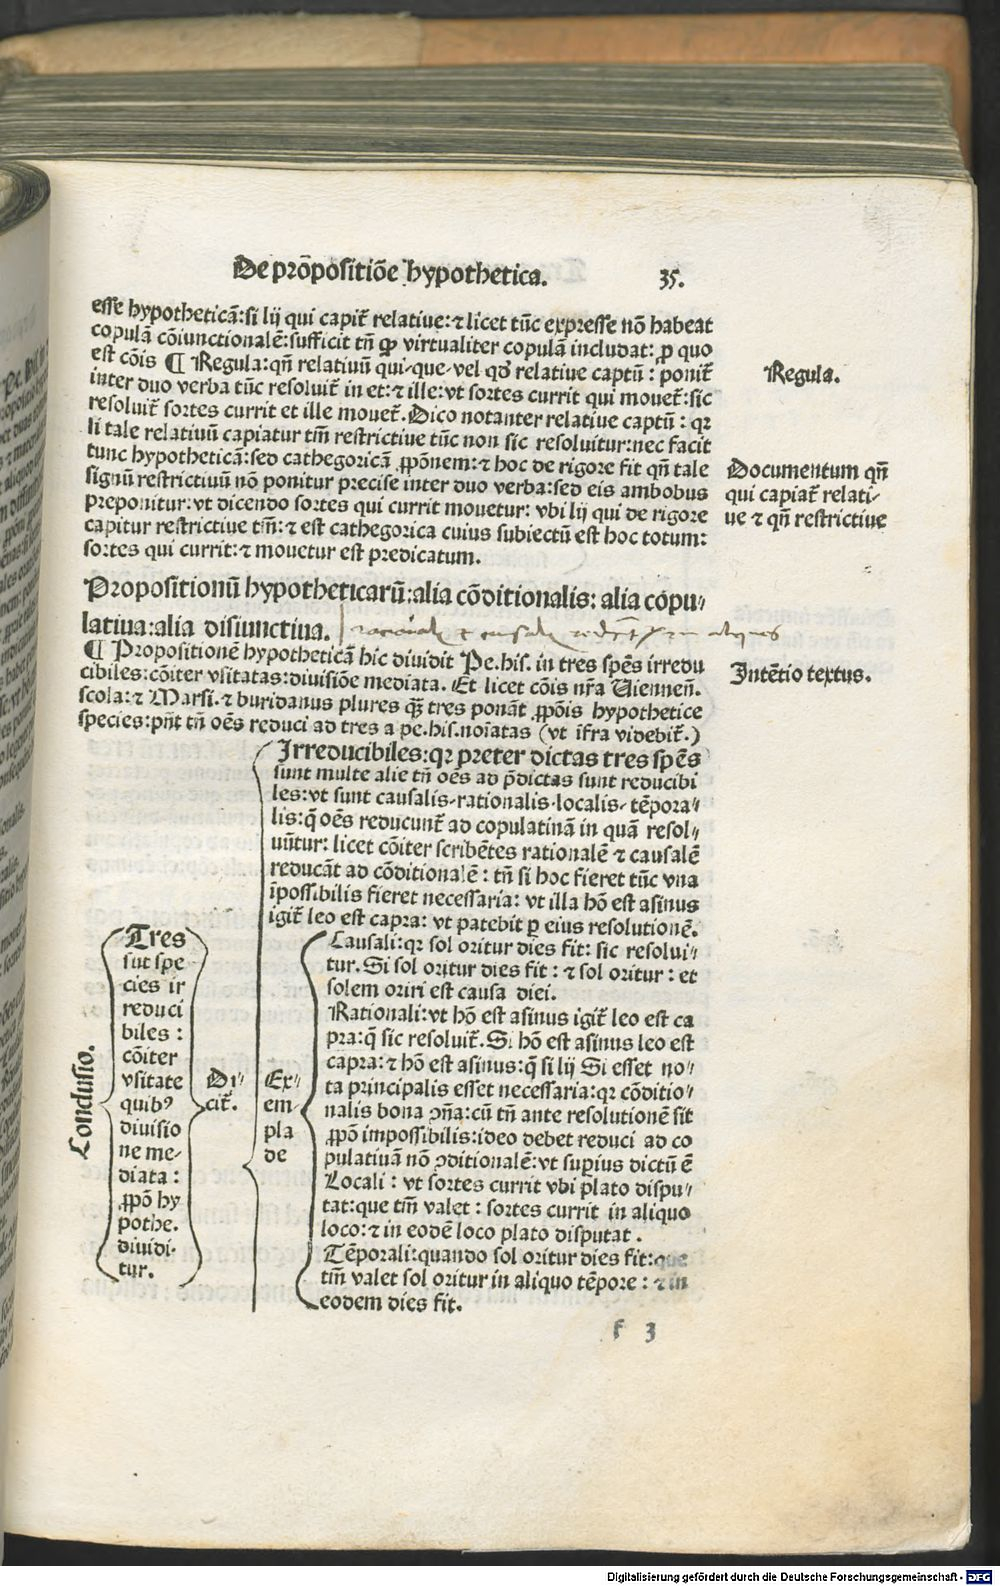 De prōpositiōe hypothetica. 35.
esse hypotheticã: si lij qui capit̃ relatiue: ⁊ licet tũc expresse nõ habeat
copulã cõiunctionalẽ: sufficit tñ ꝙ virtualiter copulã includat: ꝑ quo
est cõis ¶ Regula: qñ relatiuũ qui-que-vel qđ relatiue captũ: ponit̃
inter duo verba tũc resoluit̃ in et: ⁊ ille: vt sortes currit qui mouet̃: sic
resoluit̃ sortes currit et ille mouet̃. Dico notanter relatiue captũ: qꝛ
si tale relatiuũ capiatur tm̃ restrictiue tũc non sic resoluitur: nec facit
tunc hypotheticã: sed cathegoricã ꝓpõnem: ⁊ hoc de rigore fit qñ tale
signũ restrictiuũ nõ ponitur precise inter duo verba: sed eis ambobus
preponitur: vt dicendo sortes qui currit mouetur: vbi lij qui de rigore
capitur restrictiue tm̃: ⁊ est cathegorica cuius subiectũ est hoc totum:
sortes qui currit: ⁊ mouetur est predicatum.
Regula.
Documentum qñ
qui capiat̃ relati-
ue ⁊ qñ restrictiue
Propositionũ hypotheticarũ: alia cõditionalis: alia copu-
latiua: alia disiunctiua.
¶ Propositionẽ hypotheticã hic diuidit Pe. his. in tres spẽs irredu
cibiles: cõiter vsitatas: diuisiõe mediata. Et licet cõis nr̃a Uienneñ.
scola: ⁊ Marsi. ⁊ buridanus plures qȝ tres ponãt ꝓpõis hypothetice
species: pñt tñ oẽs reduci ad tres a pe. his. noĩatas (vt ĩfra videbit̃.)
Intẽtio textus.
Irreducibiles: qꝛ preter dictas tres spẽs
sunt multe alie tñ oẽs ad p̃dictas sunt reducibi
les: vt sunt causalis-rationalis-localis-tẽpora-
lis: q̃ oẽs reducunt̃ ad copulatiuã in quã resol-
uũtur: licet cõiter scribẽtes rationalẽ ⁊ causalẽ
reducãt ad cõditionalẽ: tñ si hoc fieret tũc vna
ĩpossibilis fieret necessaria: vt illa hõ est asinus
igit̃ leo est capra: vt patebit ꝑ eius resolutionẽ.
Conclusio.
Tres
sũt spe
cies ir
reduci
biles:
cõiter
vsitate
quibꝰ
diuisio
ne me-
diata:
ꝓpõ hy
pothe.
diuidi-
tur.
Di-
cit̃.
Ex-
em-
pla
de
Causali: qꝛ sol oritur dies fit: sic resolui-
tur. Si sol oritur dies fit: ⁊ sol oritur: et
solem oriri est causa diei.
Rationali: vt hõ est asinus igit̃ leo est ca
pra: q̃ sic resoluit̃. Si hõ est asinus leo est
capra: ⁊ hõ est asinus: q̃ si lij Si esset no-
ta principalis esset necessaria: qꝛ cõditio-
nalis bona ꝯña: cũ tñ ante resolutionẽ sit
ꝓpõ impossibilis: ideo debet reduci ad co
pulatiuã nõ ꝯditionalẽ: vt supius dictũ ẽ
Locali: vt sortes currit vbi plato dispu-
tat: que tm̃ valet: sortes currit in aliquo
loco: ⁊ in eodẽ loco plato disputat.
Tẽporali: quando sol oritur dies fit: que
tm̃ valet sol oritur in aliquo tẽpore: ⁊ in
eodem dies fit.
f 3
Digitalisierung gefördert durch die Deutsche Forschungsgemeinschaft - DFG